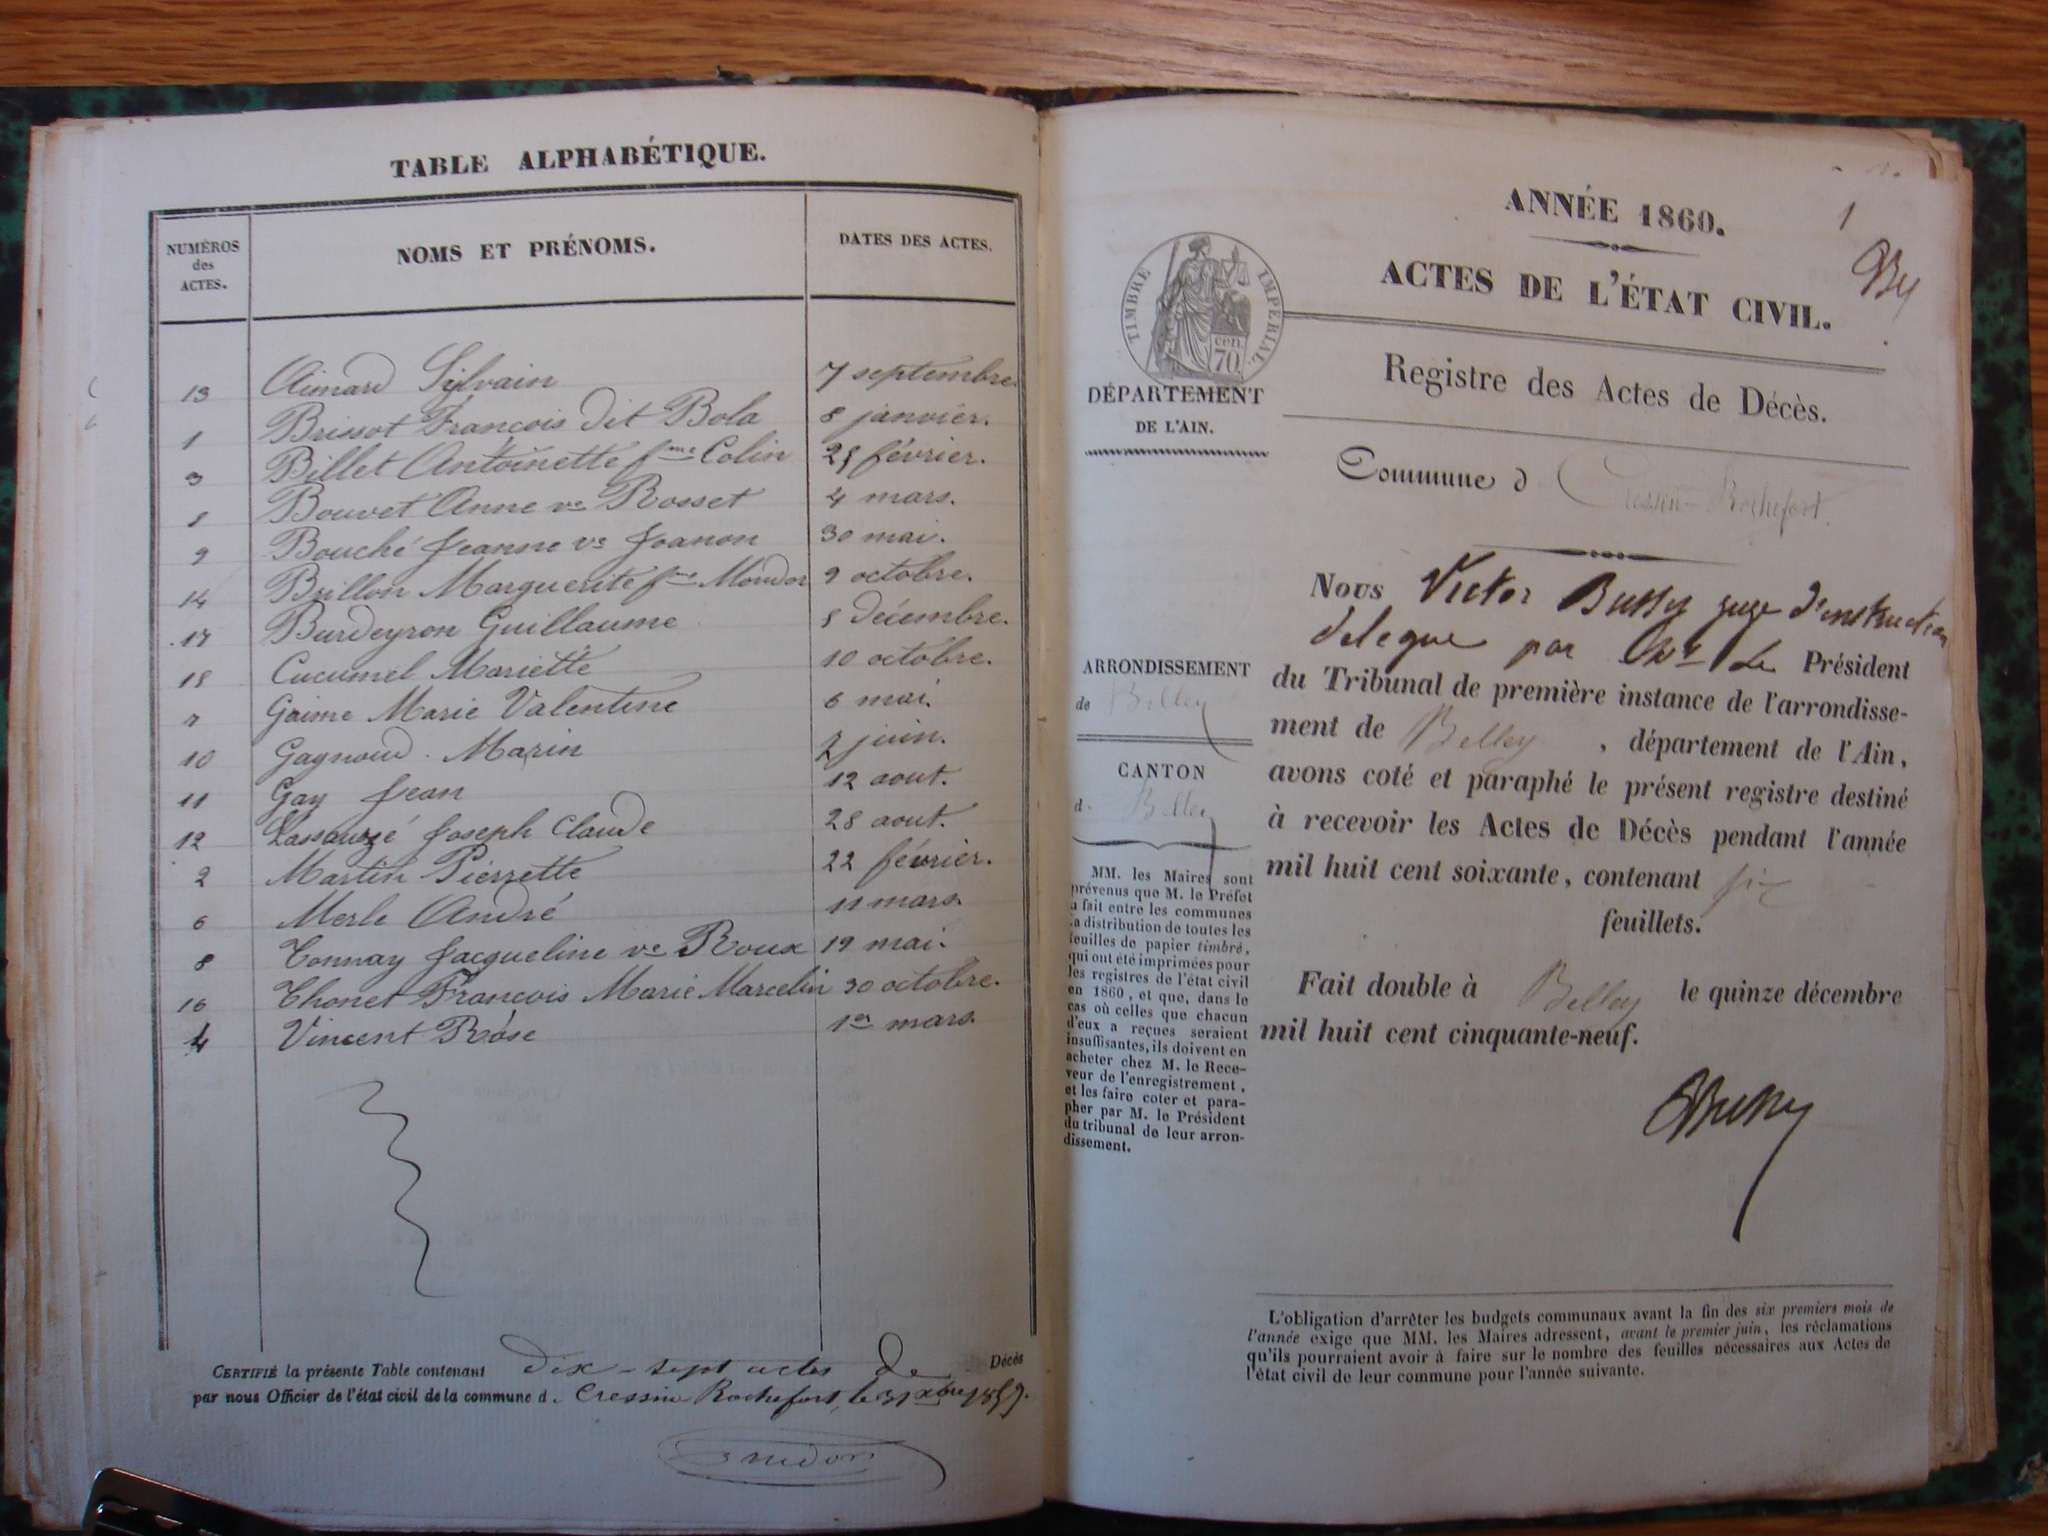 TABLE ALPHABÉTIQUE.
NUMÉROS des ACTES.
NOMS ET PRÉNOMS.
DATES DES ACTES.
13 Aimard Sylvain 7 septembre.
1 Brissot François dit Bola 8 janvier.
3 Billet Antoinette fme Colin 25 février.
5 Bouvet Anne ve Rosset 4 mars.
9 Bouché Jeanne ve Joanon 30 mai.
14 Brillon Marguerite fme 9 octobre.
17 Burdeyron Guillaume 5 décembre.
15 Cucumel Mariette 10 octobre.
7 Gaime Marie Valentine 6 mai.
10 Gagnoud Marin 2 juin.
11 Gay Jean 12 aout.
12 Joseph Claude 28 aout.
2 Martin Pierrette 22 février.
6 Merle André 11 mars.
8 Tonnay Jacqueline ve Roux 19 mai.
16 Thonet François Marie Marcelin 30 octobre.
4 Vincent Rose 1er mars.
CERTIFIÉ la présente Table contenant dix-sept actes de Décès
par nous Officier de l'état civil de la commune d. Cressin Rochefort, le 31 xbre 1859.
ANNÉE 1860.
1
ACTES DE L'ÉTAT CIVIL.
TIMBRE IMPÉRIAL
70 cen.
DÉPARTEMENT
DE L'AIN.
Registre des Actes de Décès.
Commune d Cressin-Rochefort.
Nous Victor Bussy juge d'instruction
delegue par Mr le Président
du Tribunal de première instance de l'arrondisse-
ment de Belley, département de l'Ain,
avons coté et paraphé le présent registre destiné
à recevoir les Actes de Décès pendant l'année
mil huit cent soixante, contenant six
feuillets.
Fait double à Belley le quinze décembre
mil huit cent cinquante-neuf.
Bussy
ARRONDISSEMENT
de Belley
CANTON
d. Belley
MM. les Maires sont
prévenus que M. le Préfet
a fait entre les communes
la distribution de toutes les
feuilles de papier timbré,
qui ont été imprimées pour
les registres de l'état civil
en 1860, et que, dans le
cas où celles que chacun
d'eux a reçues seraient
insuffisantes, ils doivent en
acheter chez M. le Rece-
veur de l'enregistrement,
et les faire coter et para-
pher par M. le Président
du tribunal de leur arron-
dissement.
L'obligation d'arrêter les budgets communaux avant la fin des six premiers mois de
l'année exige que MM. les Maires adressent, avant le premier juin, les réclamations
qu'ils pourraient avoir à faire sur le nombre des feuilles nécessaires aux Actes de
l'état civil de leur commune pour l'année suivante.